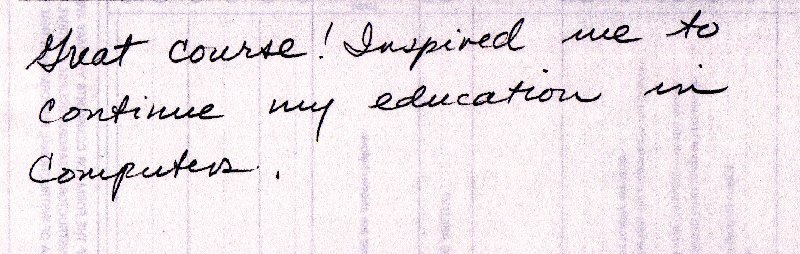 Great course! Inspired me to
continue my education in
Computers.